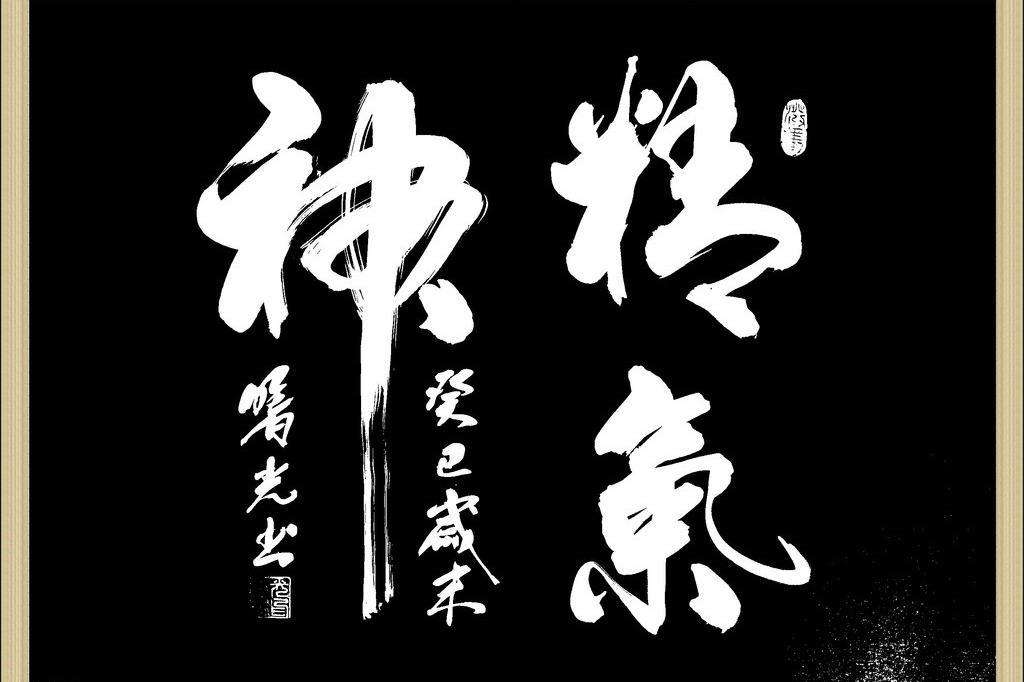 精氣
神
癸巳歲末
光书